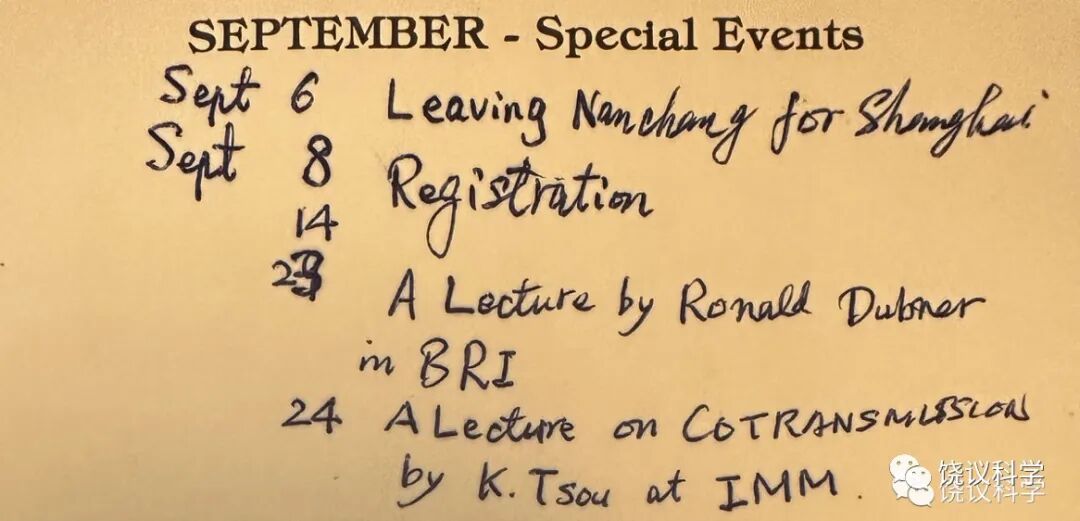 SEPTEMBER - Special Events
Sept 6 Leaving Nanchang for Shanghai
Sept 8 Registration
14
23 A Lecture by Ronald Dubner
in BRI
24 A Lecture on COTRANSMISSION
by K. Tsou at IMM.
饶议科学
饶议科学